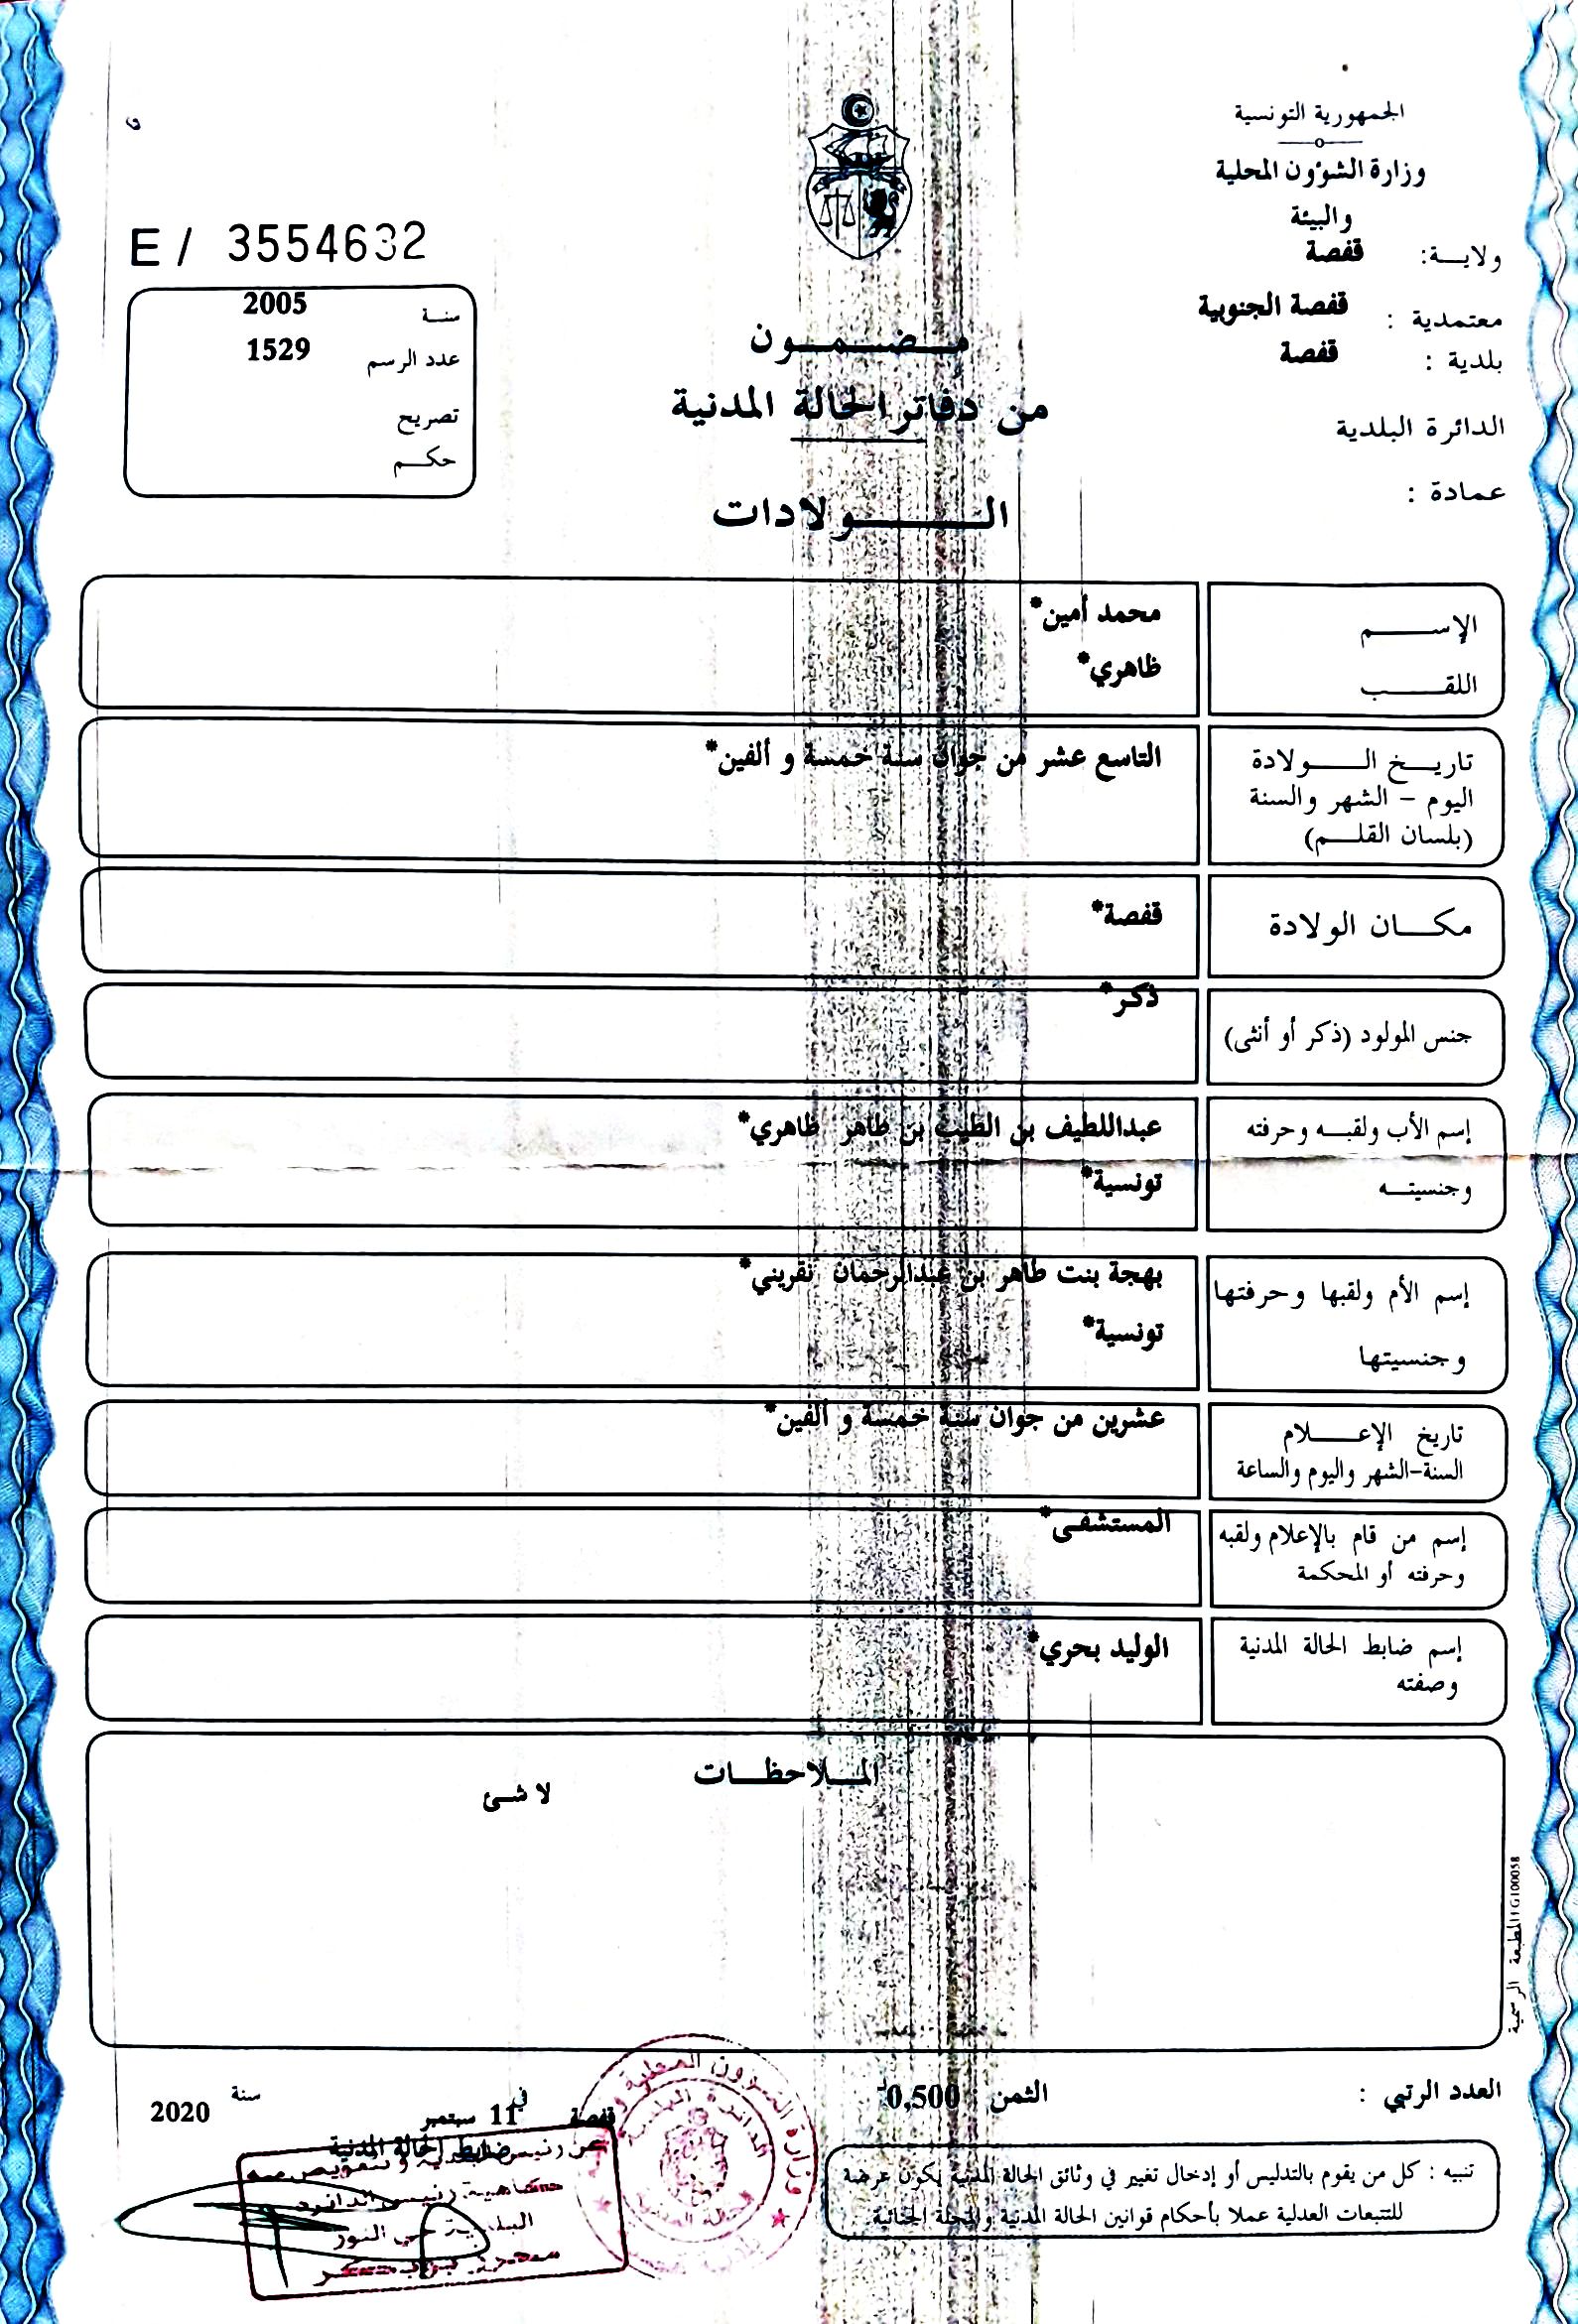 الجمهورية التونسية
وزارة الشؤون المحلية
والبيئة
ولاية: قفصة
معتمدية : قفصة الجنوبية
بلدية : قفصة
الدائرة البلدية
عمادة :
E / 3554632
سنة 2005
عدد الرسم 1529
تصريح
حكم
مضمون
من دفاتر الحالة المدنية
الولادات
الإسم محمد أمين*
اللقب ظاهري*
تاريخ الولادة التاسع عشر من جوان سنة خمسة و ألفين*
اليوم - الشهر والسنة
(بلسان القلم)
مكان الولادة قفصة*
جنس المولود (ذكر أو أنثى) ذكر*
إسم الأب ولقبه وحرفته عبداللطيف بن الطيب بن طاهر ظاهري*
وجنسيته تونسية*
إسم الأم ولقبها وحرفتها بهجة بنت طاهر بن عبدالرحمان نقريني*
وجنسيتها تونسية*
تاريخ الإعلام عشرين من جوان سنة خمسة و ألفين*
السنة-الشهر واليوم والساعة
إسم من قام بالإعلام ولقبه المستشفى*
وحرفته أو المحكمة
إسم ضابط الحالة المدنية الوليد بحري*
وصفته
الملاحظات
لا شئ
المطبعة الرسمية
العدد الرتبي :
الثمن 0,500
قفصة في 11 سبتمبر سنة 2020
ضابط الحالة المدنية
تنبيه : كل من يقوم بالتدليس أو إدخال تغيير في وثائق الحالة المدنية يكون عرضة
للتتبعات العدلية عملا بأحكام قوانين الحالة المدنية والمجلة الجنائية